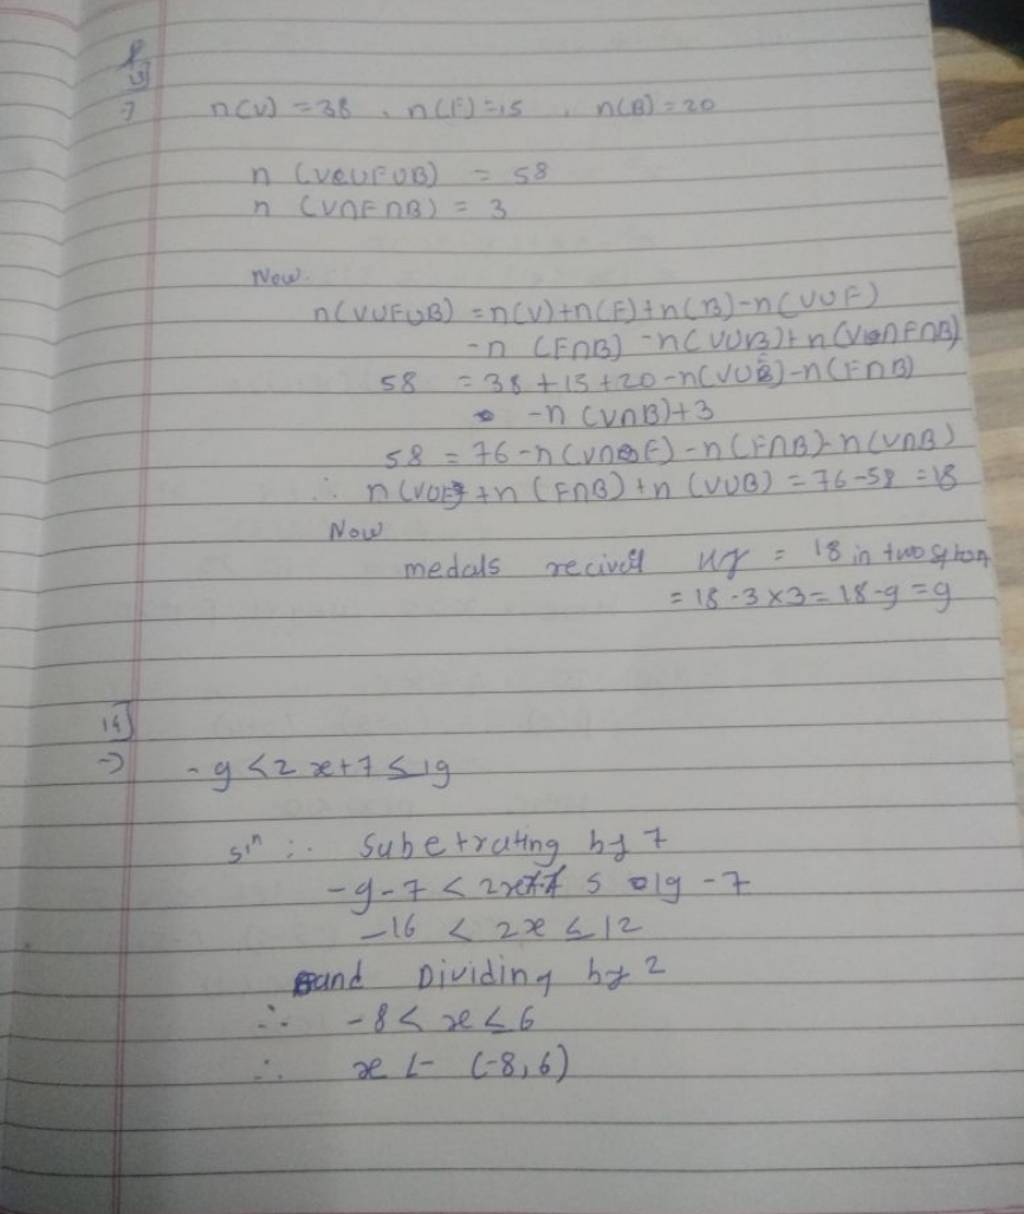 13]
→ n(V) = 38, n(F) = 15, n(B) = 20
n (VUFUB) = 58
n (V∩F∩B) = 3
Now
n(VUFUB) = n(V)+n(F)+n(B)-n(VUF)
-n (F∩B) -n(VUB)+n(V∩F∩B)
58 = 38+15+20-n(VUF)-n(F∩B)
-n (V∩B)+3
58 = 76-n(V∩F)-n(F∩B)-n(V∩B)
∴ n(VUF)+n(F∩B)+n(VUB) = 76-58 = 18
Now
medals = 18 in two
= 18-3×3=18-9=9
14]
→ -9<2x+7≤19
Sⁿ ∴ Subetrating by 7
-9-7<2x+7-7≤19-7
-16 < 2x ≤ 12
and Dividing by 2
∴ -8< x ≤ 6
∴ x ∈ (-8,6)